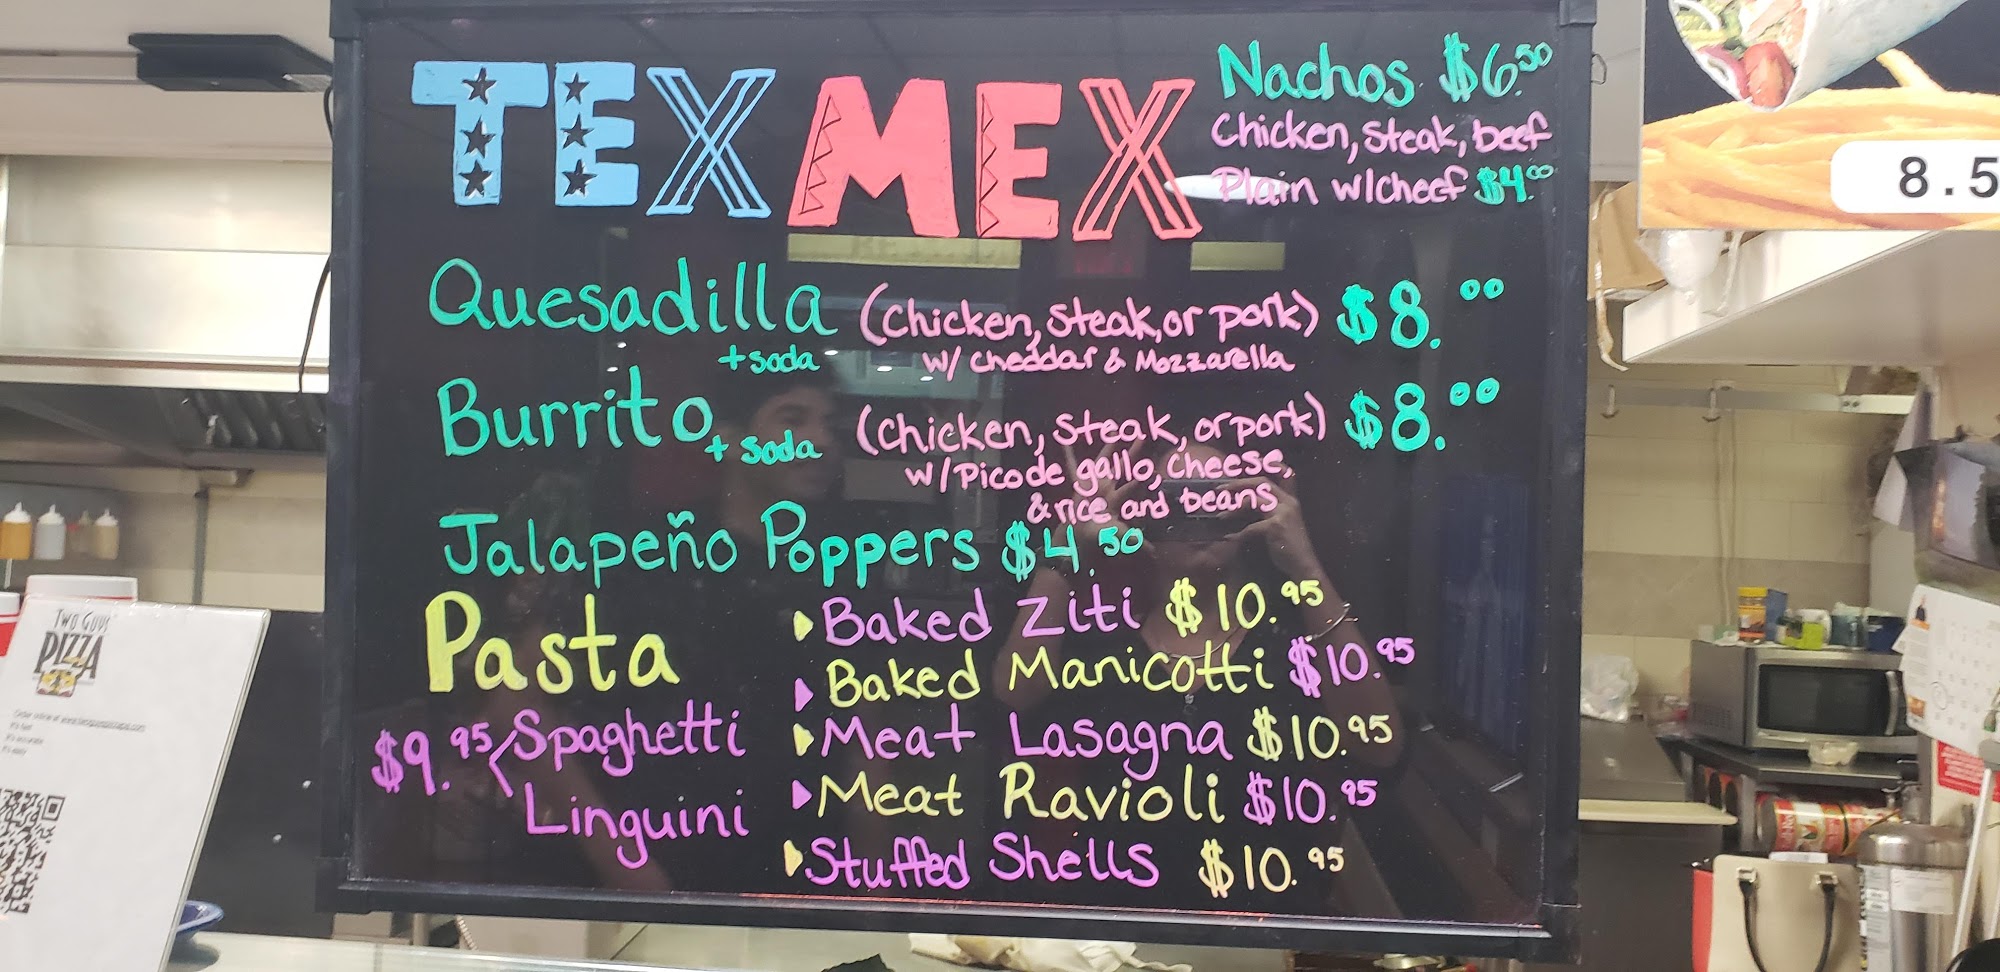 TEX MEX
Nachos $6.50
Chicken, Steak, beef
Plain w/cheef $4.00
Quesadilla (Chicken, Steak, or pork) $8.00
+ soda w/ cheddar & Mozzarella
Burrito + soda (Chicken, Steak, or pork) $8.00
w/Pico de gallo, Cheese,
& rice and beans
Jalapeño Poppers $4.50
Pasta
$9.95 Spaghetti
Linguini
Baked Ziti $10.95
Baked Manicotti $10.95
Meat Lasagna $10.95
Meat Ravioli $10.95
Stuffed Shells $10.95
8.5
TWO GUYS
PIZZA